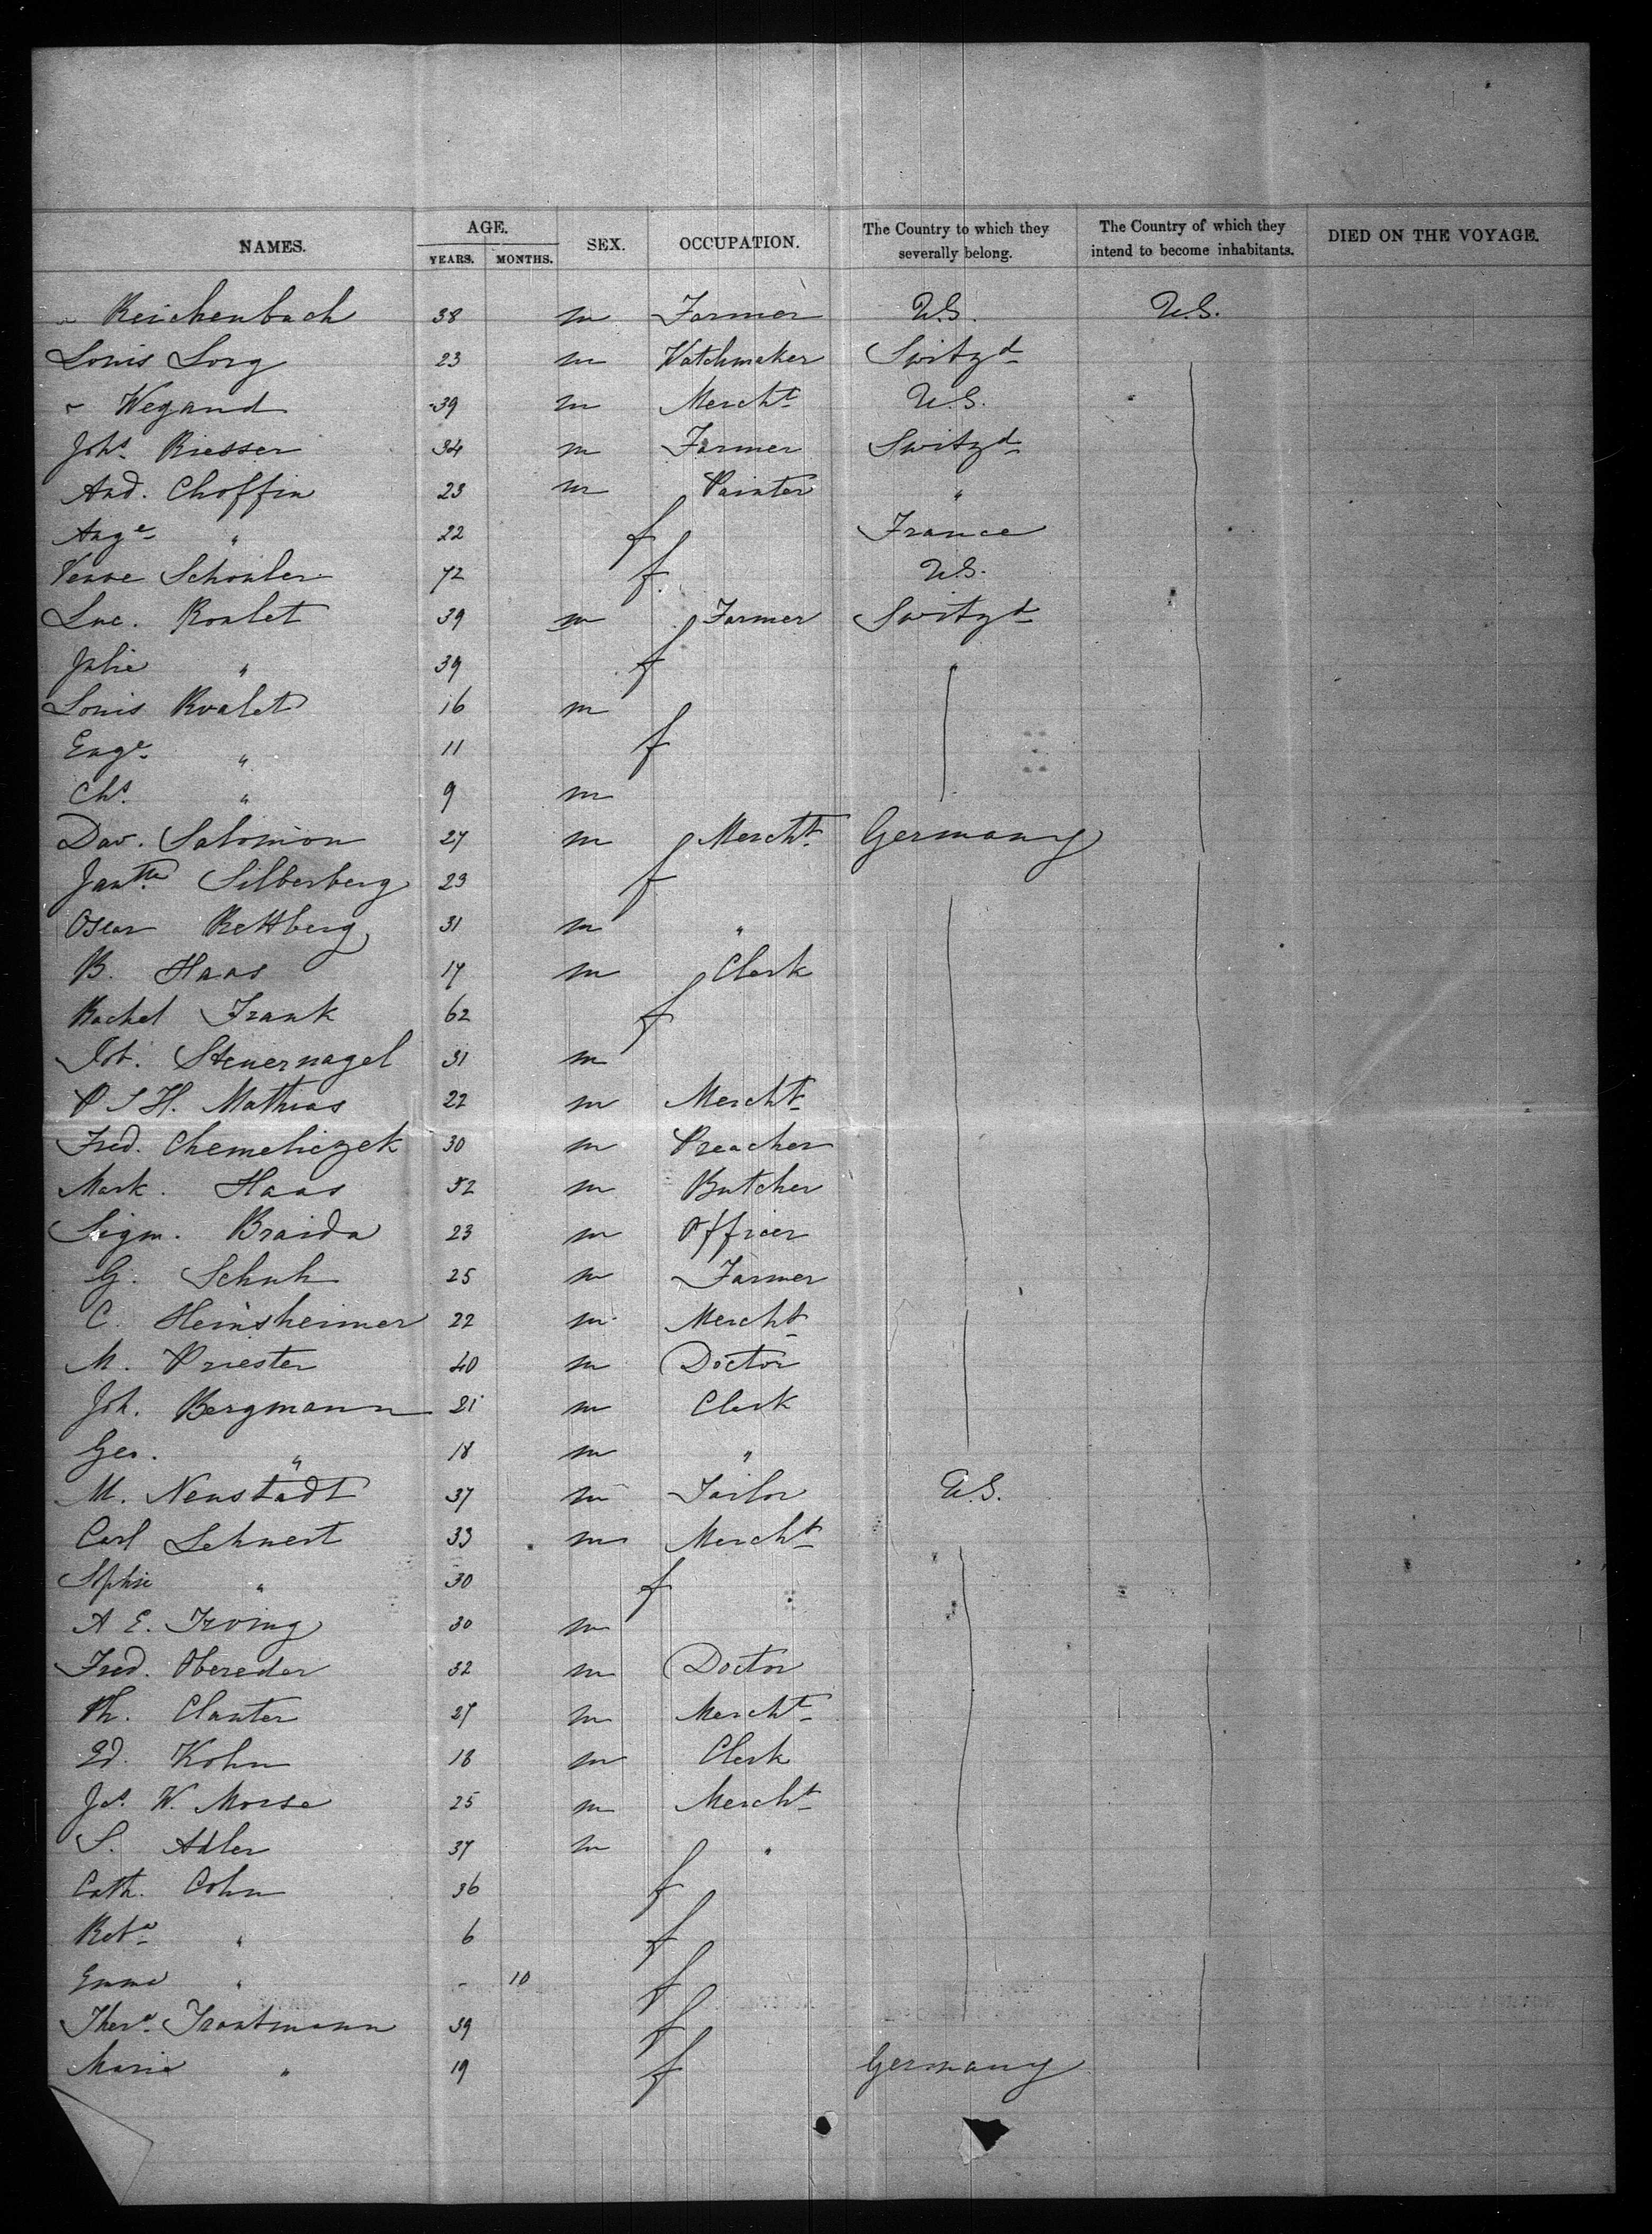 NAMES. AGE. YEARS. MONTHS. SEX. OCCUPATION. The Country to which they severally belong. The Country of which they intend to become inhabitants. DIED ON THE VOYAGE.
Reichenbach 38 m Farmer U.S. U.S.
Louis Lorg 23 m Watchmaker Switzd
Wegand 39 m Mercht U.S.
Johs. Riesser 34 m Farmer Switzd
And. Choffin 23 m Painter "
Auge " 22 f France
Veuve Schouler 72 f U.S.
Luc. Roulet 39 m Farmer Switzd
Julie " 39 f
Louis Roulet 16 m
Euge " 11 f
Chs. " 9 m
Dav. Salomon 27 m Mercht Germany
Jantte Silberberg 23 f
Oscar Rettberg 31 m "
B. Haas 17 m Clerk
Rachel Frank 62 f
Job. Steuernagel 31 m
P S H. Mathias 22 m Mercht
Fred. Chemeliczek 30 m Preacher
Mark. Haas 52 m Butcher
Sigm. Braida 23 m Officer
G. Schuh 25 m Farmer
C. Heinsheimer 22 m Mercht
M. Priester 40 m Doctor
Joh. Bergmann 21 m Clerk
Geo. " 18 m "
M. Neustadt 37 m Tailor U.S.
Carl Lehnert 33 m Mercht
Sophie " 30 f
A E. Irving 30 m
Fred. Obereder 32 m Doctor
Ph. Clanter 27 m Mercht
Ed. Kohn 18 m Clerk
Jos. W. Morse 25 m Mercht
S. Adler 37 m "
Cath. Cohn 36 f
Reba " 6 f
Emma " - 10 f
Thera Trautmann 39 f
Maria " 19 f Germany